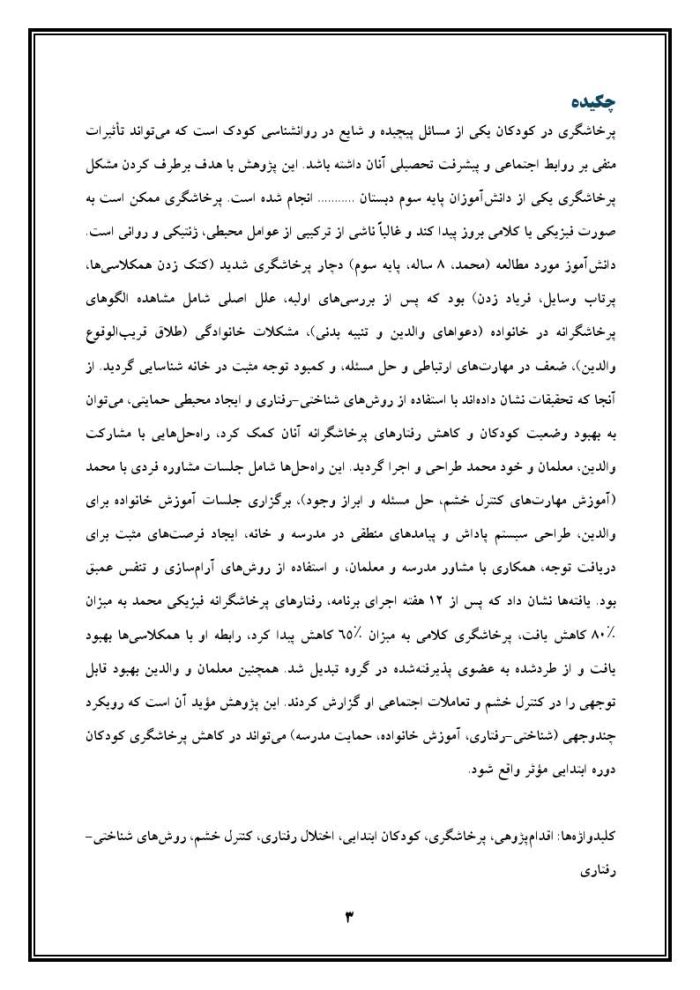 چکیده
پرخاشگری در کودکان یکی از مسائل پیچیده و شایع در روانشناسی کودک است که می‌تواند تأثیرات
منفی بر روابط اجتماعی و پیشرفت تحصیلی آنان داشته باشد. این پژوهش با هدف برطرف کردن مشکل
پرخاشگری یکی از دانش‌آموزان پایه سوم دبستان ........... انجام شده است. پرخاشگری ممکن است به
صورت فیزیکی یا کلامی بروز پیدا کند و غالباً ناشی از ترکیبی از عوامل محیطی، ژنتیکی و روانی است.
دانش‌آموز مورد مطالعه (محمد، ۸ ساله، پایه سوم) دچار پرخاشگری شدید (کتک زدن همکلاسی‌ها،
پرتاب وسایل، فریاد زدن) بود که پس از بررسی‌های اولیه، علل اصلی شامل مشاهده الگوهای
پرخاشگرانه در خانواده (دعواهای والدین و تنبیه بدنی)، مشکلات خانوادگی (طلاق قریب‌الوقوع
والدین)، ضعف در مهارت‌های ارتباطی و حل مسئله، و کمبود توجه مثبت در خانه شناسایی گردید. از
آنجا که تحقیقات نشان داده‌اند با استفاده از روش‌های شناختی-رفتاری و ایجاد محیطی حمایتی، می‌توان
به بهبود وضعیت کودکان و کاهش رفتارهای پرخاشگرانه آنان کمک کرد، راه‌حل‌هایی با مشارکت
والدین، معلمان و خود محمد طراحی و اجرا گردید. این راه‌حل‌ها شامل جلسات مشاوره فردی با محمد
(آموزش مهارت‌های کنترل خشم، حل مسئله و ابراز وجود)، برگزاری جلسات آموزش خانواده برای
والدین، طراحی سیستم پاداش و پیامدهای منطقی در مدرسه و خانه، ایجاد فرصت‌های مثبت برای
دریافت توجه، همکاری با مشاور مدرسه و معلمان، و استفاده از روش‌های آرام‌سازی و تنفس عمیق
بود. یافته‌ها نشان داد که پس از ۱۲ هفته اجرای برنامه، رفتارهای پرخاشگرانه فیزیکی محمد به میزان
۸۰٪ کاهش یافت، پرخاشگری کلامی به میزان ۶۵٪ کاهش پیدا کرد، رابطه او با همکلاسی‌ها بهبود
یافت و از طردشده به عضوی پذیرفته‌شده در گروه تبدیل شد. همچنین معلمان و والدین بهبود قابل
توجهی را در کنترل خشم و تعاملات اجتماعی او گزارش کردند. این پژوهش مؤید آن است که رویکرد
چندوجهی (شناختی-رفتاری، آموزش خانواده، حمایت مدرسه) می‌تواند در کاهش پرخاشگری کودکان
دوره ابتدایی مؤثر واقع شود.
کلیدواژه‌ها: اقدام‌پژوهی، پرخاشگری، کودکان ابتدایی، اختلال رفتاری، کنترل خشم، روش‌های شناختی-
رفتاری
۳